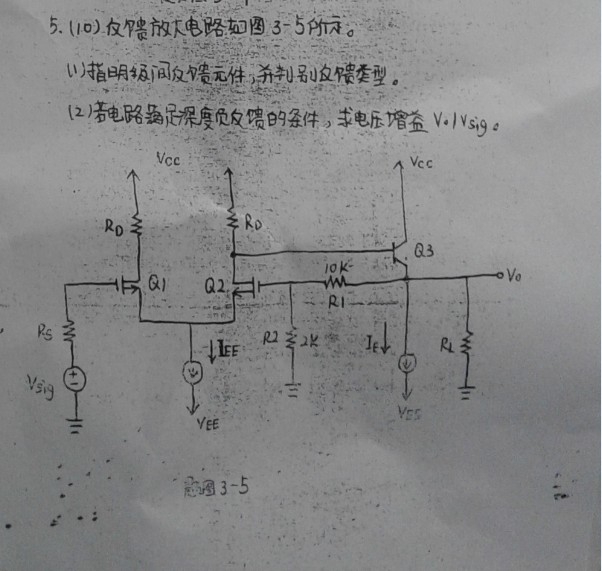 5.(10)反馈放大电路如图3-5所示。
(1)指明级间反馈元件,并判别反馈类型。
(2)若电路满足深度负反馈的条件,求电压增益 Vo/Vsig。
Vcc
Vcc
RD
RD
Q3
Q1
Q2
10K
R1
Vo
RS
R2
2K
IEE
IE
RL
Vsig
VEE
VEE
题图3-5